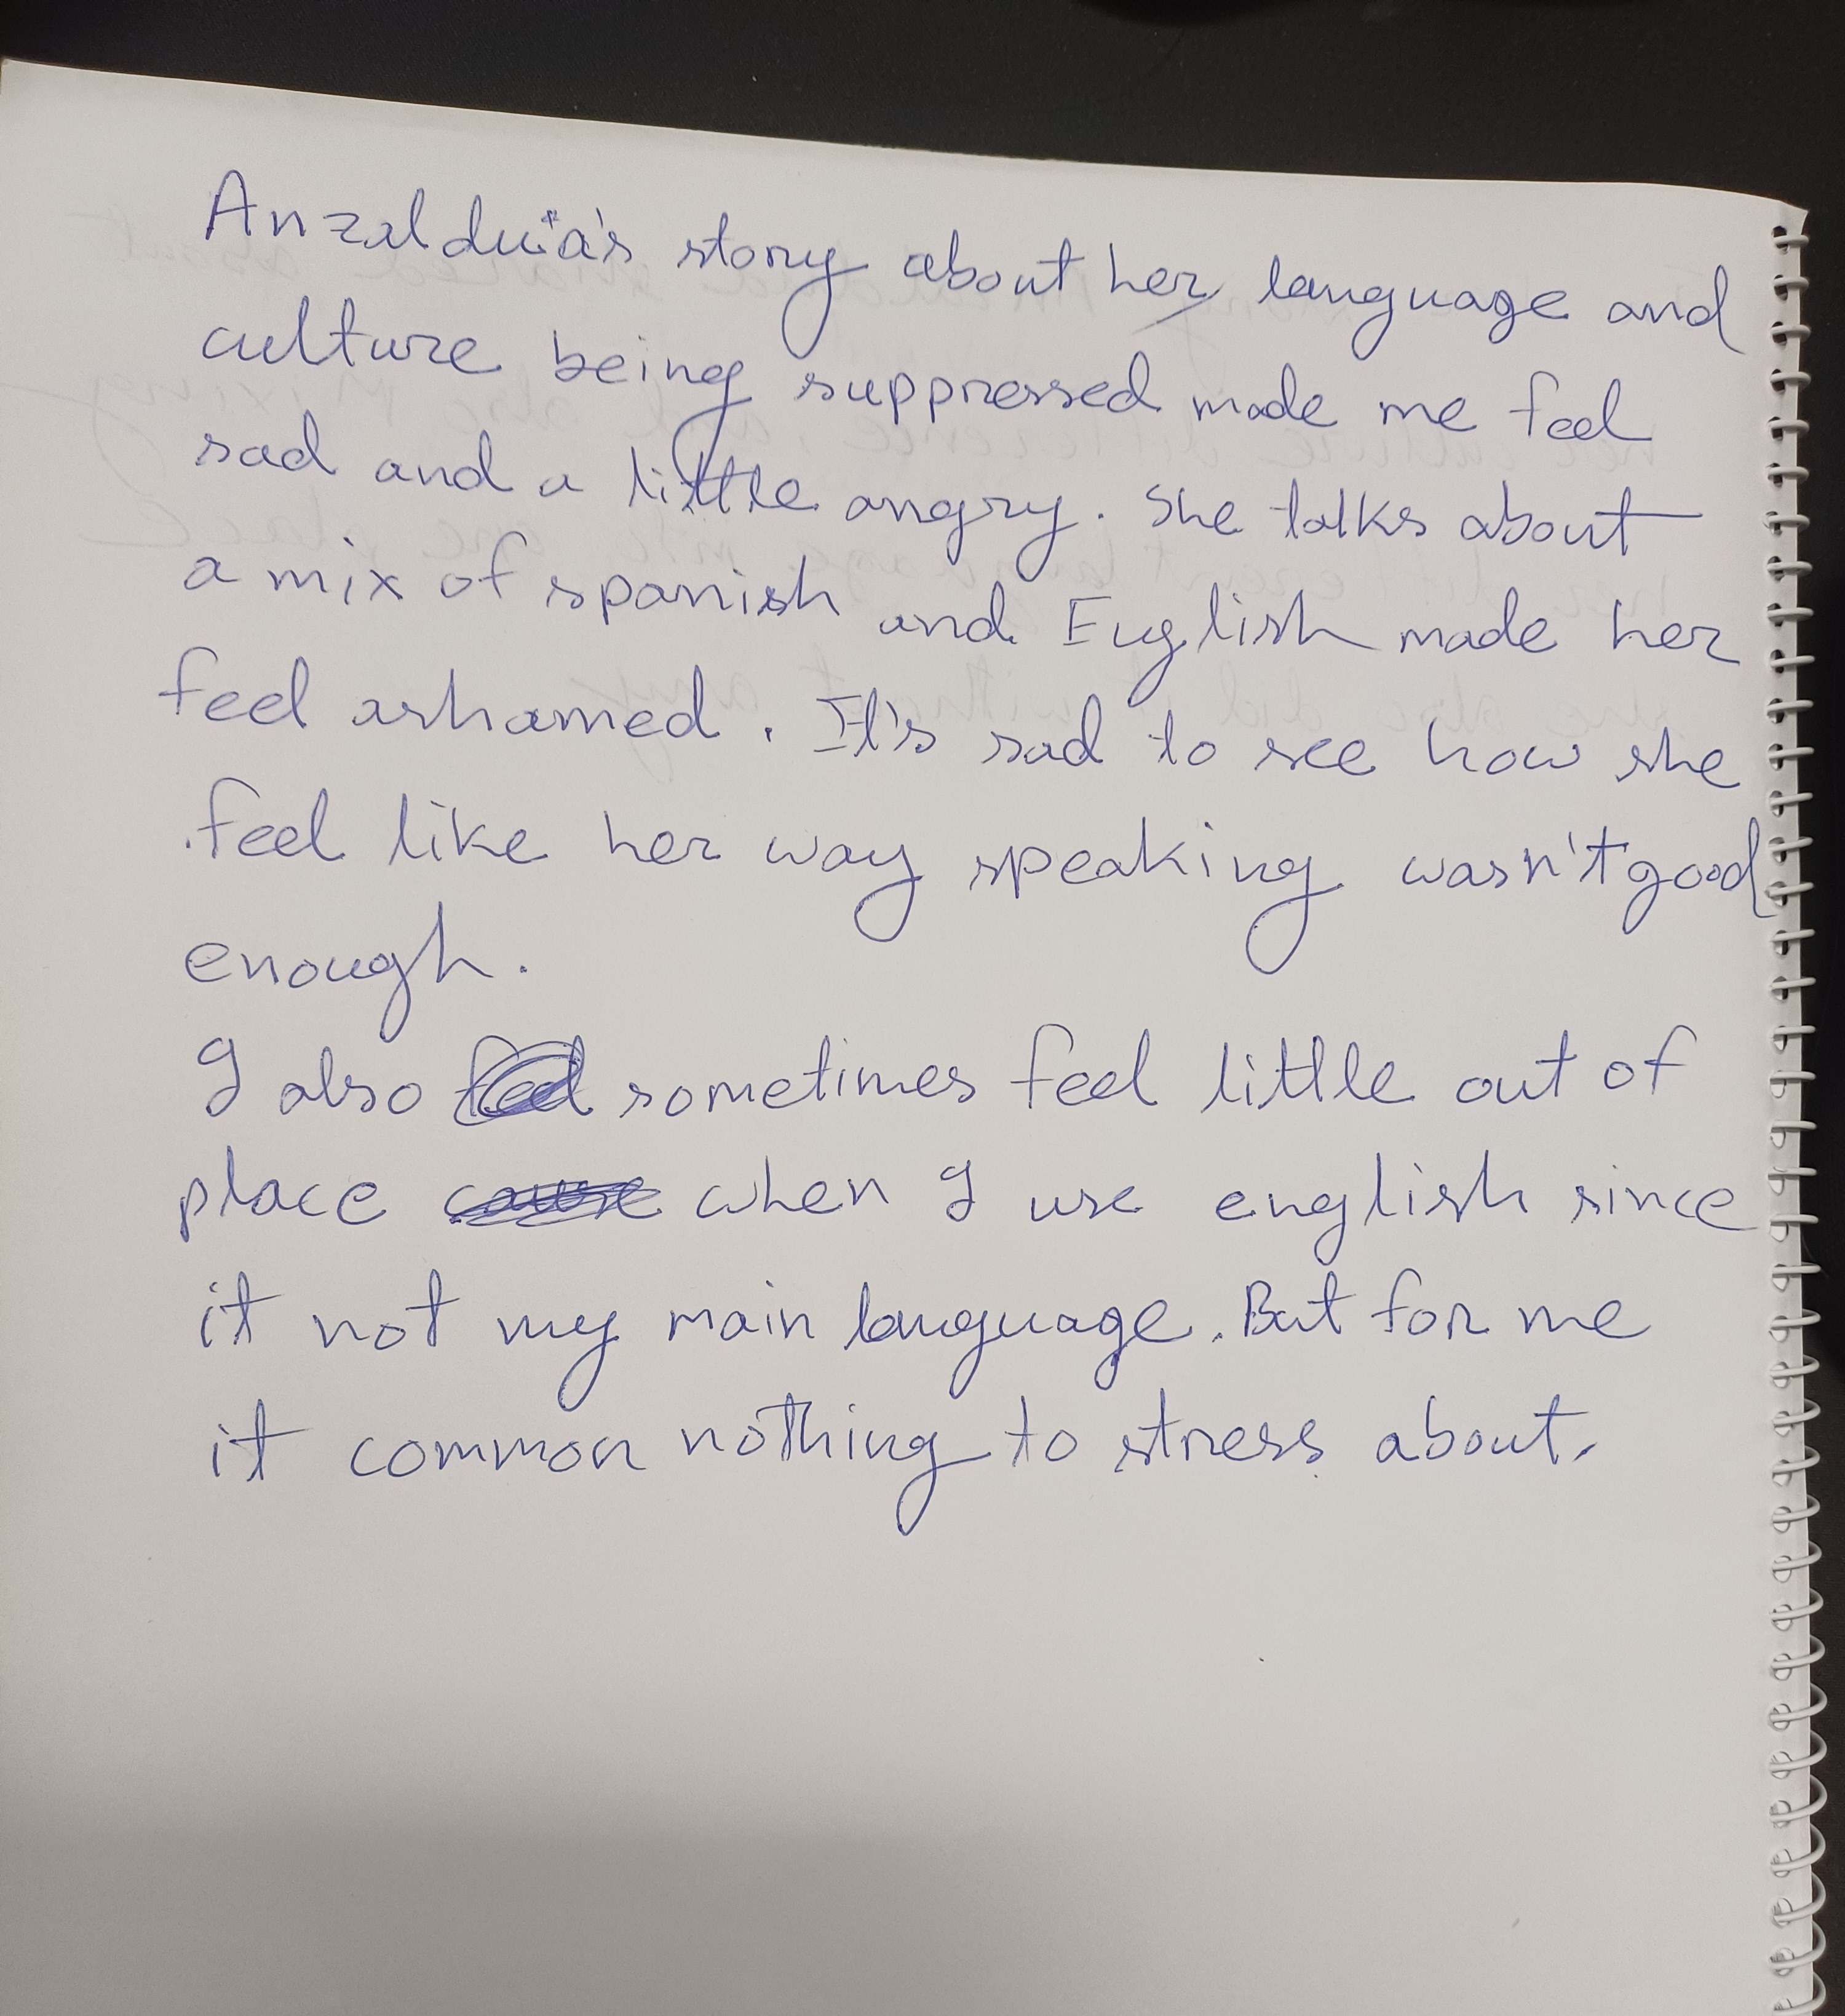 Anzaldúa's story about her language and
culture being suppressed made me feel
sad and a little angry. She talks about
a mix of spanish and English made her
feel ashamed. It's sad to see how she
feel like her way speaking wasn't good
enough.
I also sometimes feel little out of
place when I use english since
it not my main language. But for me
it common nothing to stress about.